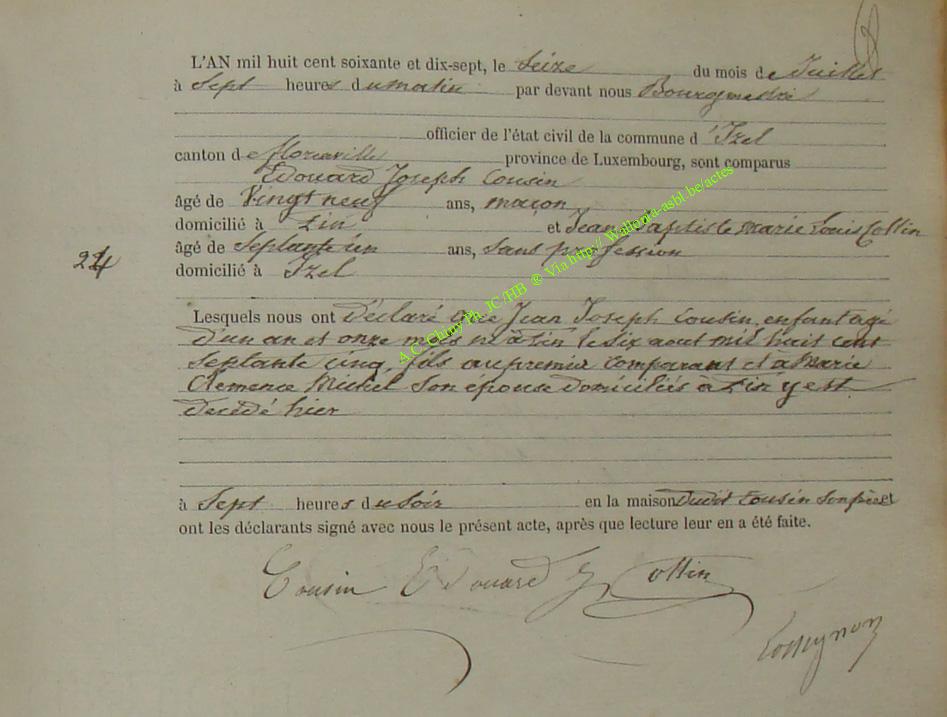 L'AN mil huit cent soixante et dix-sept, le Seize du mois de Juillet
à Sept heures du matin par devant nous Bourgmestre
officier de l'état civil de la commune d'Izel
canton de florenville province de Luxembourg, sont comparus
Edouard Joseph Cousin
âgé de Vingt neuf ans, maçon
domicilié à et Jean Baptiste Marie Louis Collin
âgé de Septante un ans, Sans profession
24 domicilié à Izel
Lesquels nous ont Déclaré que Jean Joseph Cousin, enfant agé
d'un an et onze mois né à le Six aout mil huit cent
Septante Cinq, fils au premier Comparant et à Marie
Clemence Michel Son épouse domiciliés à y est
decedé hier
à Sept heures du Soir en la maison Dudit Cousin Son père et
ont les déclarants signé avec nous le présent acte, après que lecture leur en a été faite.
Cousin Edouard J Collin
A.C. Chiny Ph. JC/HB ® Via http:// Wallonia-asbl.be/actes